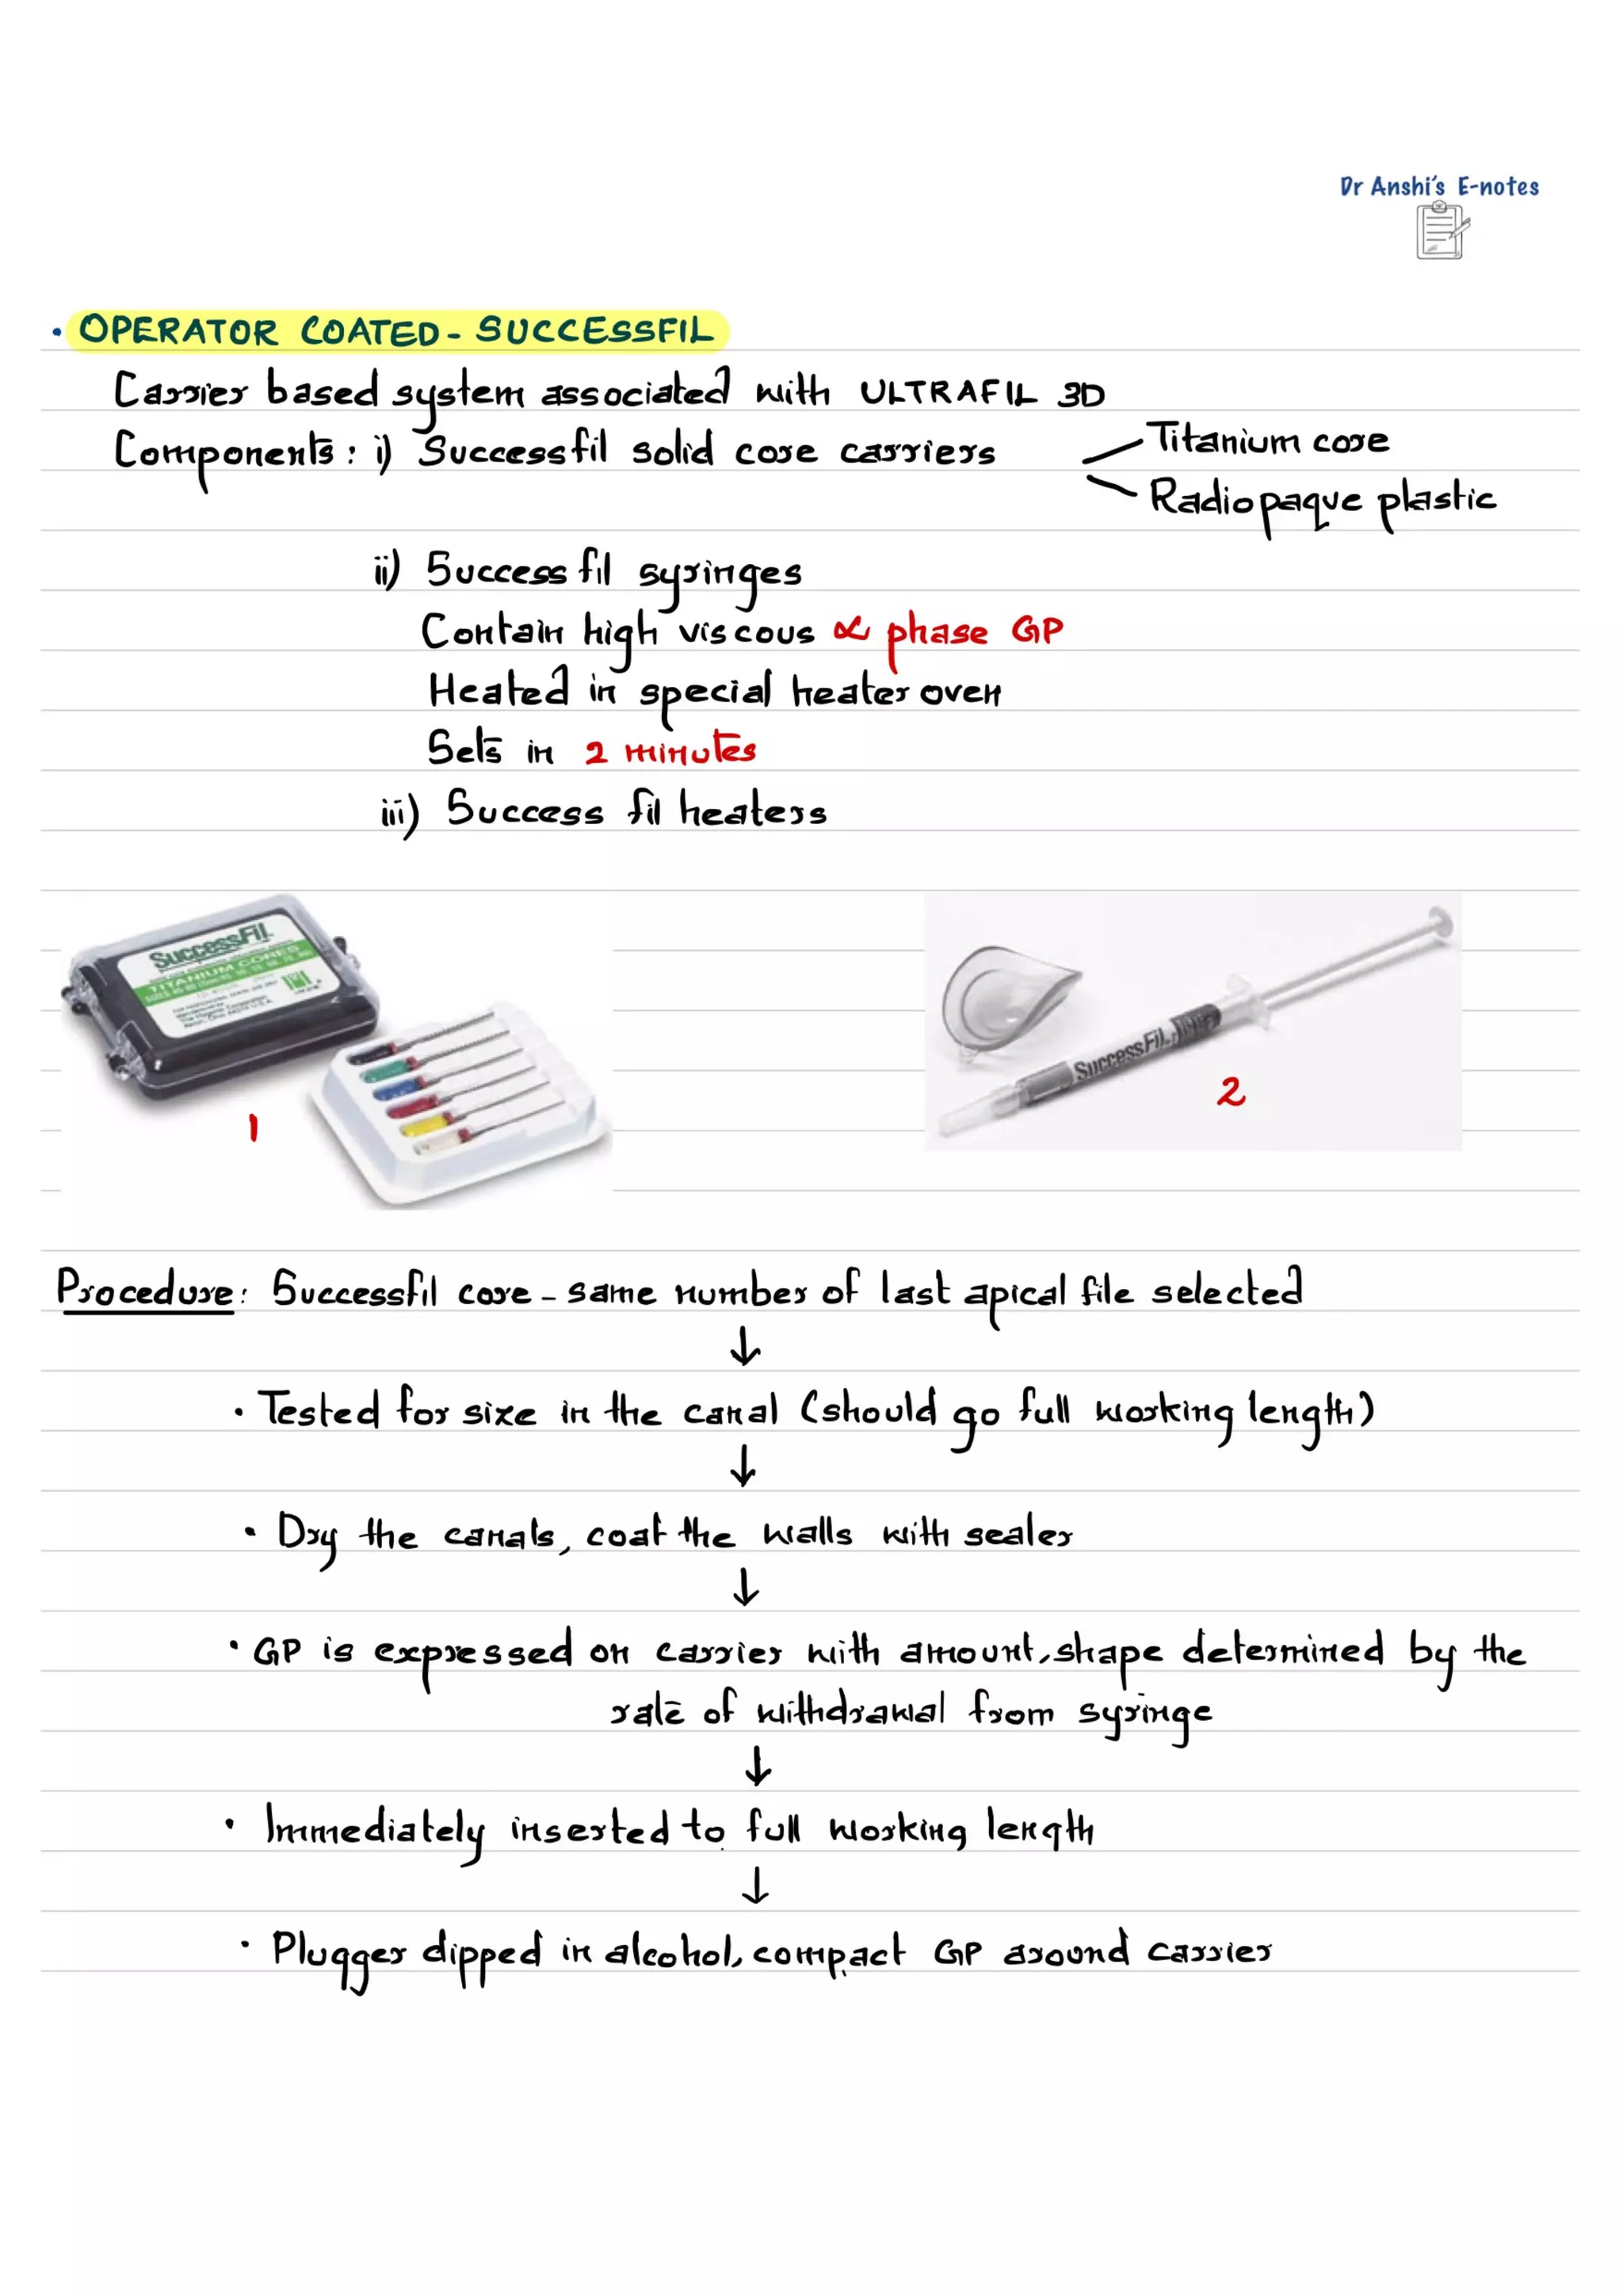 Dr Anshi's E-notes
• OPERATOR COATED - SUCCESSFIL
Carrier based system associated with ULTRAFIL 3D
Components: i) Successfil solid core carriers
Titanium core
Radiopaque plastic
ii) Success fil syringes
Contain high viscous α phase GP
Heated in special heater oven
Sets in 2 minutes
iii) Success fil heaters
SuccessFil
TITANIUM CORES
1
SuccessFil
2
Procedure: Successfil core - same number of last apical file selected
↓
• Tested for size in the canal (should go full working length)
↓
• Dry the canals, coat the walls with sealer
↓
• GP is expressed on carrier with amount, shape determined by the
rate of withdrawal from syringe
↓
• Immediately inserted to full working length
↓
• Plugger dipped in alcohol, compact GP around carrier